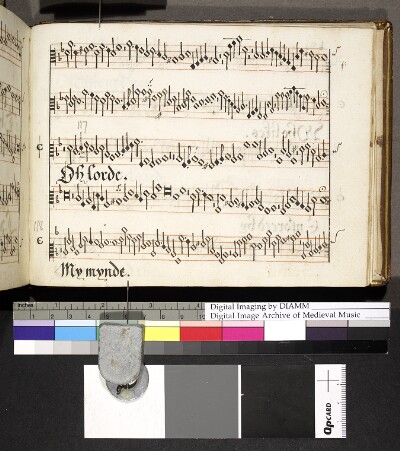 Oh lorde.
My mynde.
inches 1 2 3
Digital Imaging by DIAMM
Digital Image Archive of Medieval Music
QPCARD